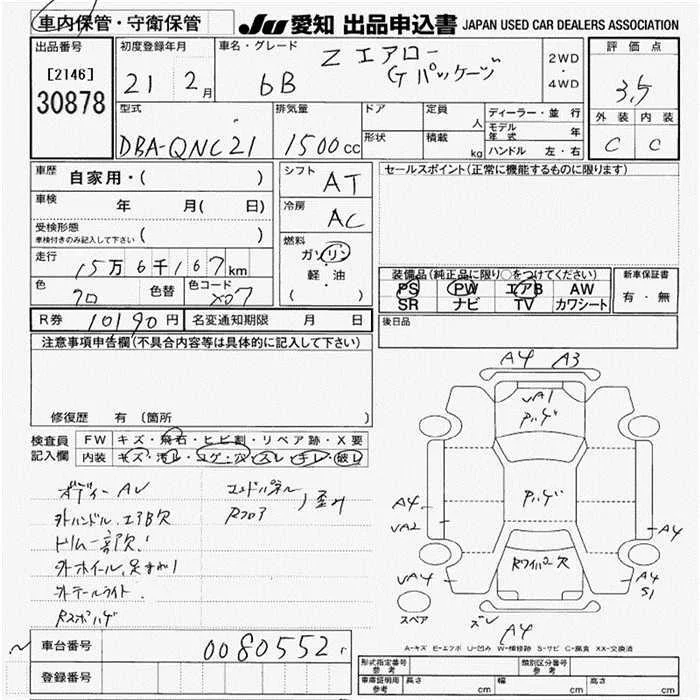 車内保管・守衛保管
JU 愛知 出品申込書 JAPAN USED CAR DEALERS ASSOCIATION
出品番号
[2146]
30878
初度登録年月
21 2月
車名・グレード
bB Z エアロー
G パッケージ
2WD
・
4WD
評価点
3.5
外装 内装
C C
型式
DBA-QNC21
排気量
1500cc
ドア
形状
定員
人
積載
kg
ディーラー・並行
モデル年式 年
ハンドル 左・右
車歴
自家用・( )
車検
年 月( 日)
受検形態
車検付きのみ記入して下さい ( )
走行
15万6千167km
色
クロ
色替
色コード
X07
シフト
AT
冷房
AC
燃料
ガソリン
・
軽・油
( )
セールスポイント(正常に機能するものに限ります)
装備品(純正品に限り○をつけてください)
PS PW エアB AW
SR ナビ TV カワシート
新車保証書
有・無
R券 10190円
名変通知期限 月 日
後日品
注意事項申告欄(不具合内容等は具体的に記入して下さい)
修復歴 有 (箇所
検査員
記入欄
FW キズ・飛石・ヒビ割・リペア跡・X要
内装 キズ・汚レ・コゲ・穴・スレ・キレ・破レ
ボディー AU
外ハンドル、エアB欠
トリム一部欠
外ホイール
外テールライト
Rスポハゲ
エンドパネル
Rフロア
歪み
A4 A3
UA1
Pハゲ
Pハゲ
Rワイパー欠
A4
UA2
UA4
A4
A4
S1
スペア
ズレ
A4
A-キズ E-エクボ U-凹み W-補修跡 S-サビ C-腐食 XX-交換済
車台番号
0080552
登録番号
形式指定番号
参考
類別区分番号
参考
車庫証明用
参考
長さ cm
幅 cm
高さ cm